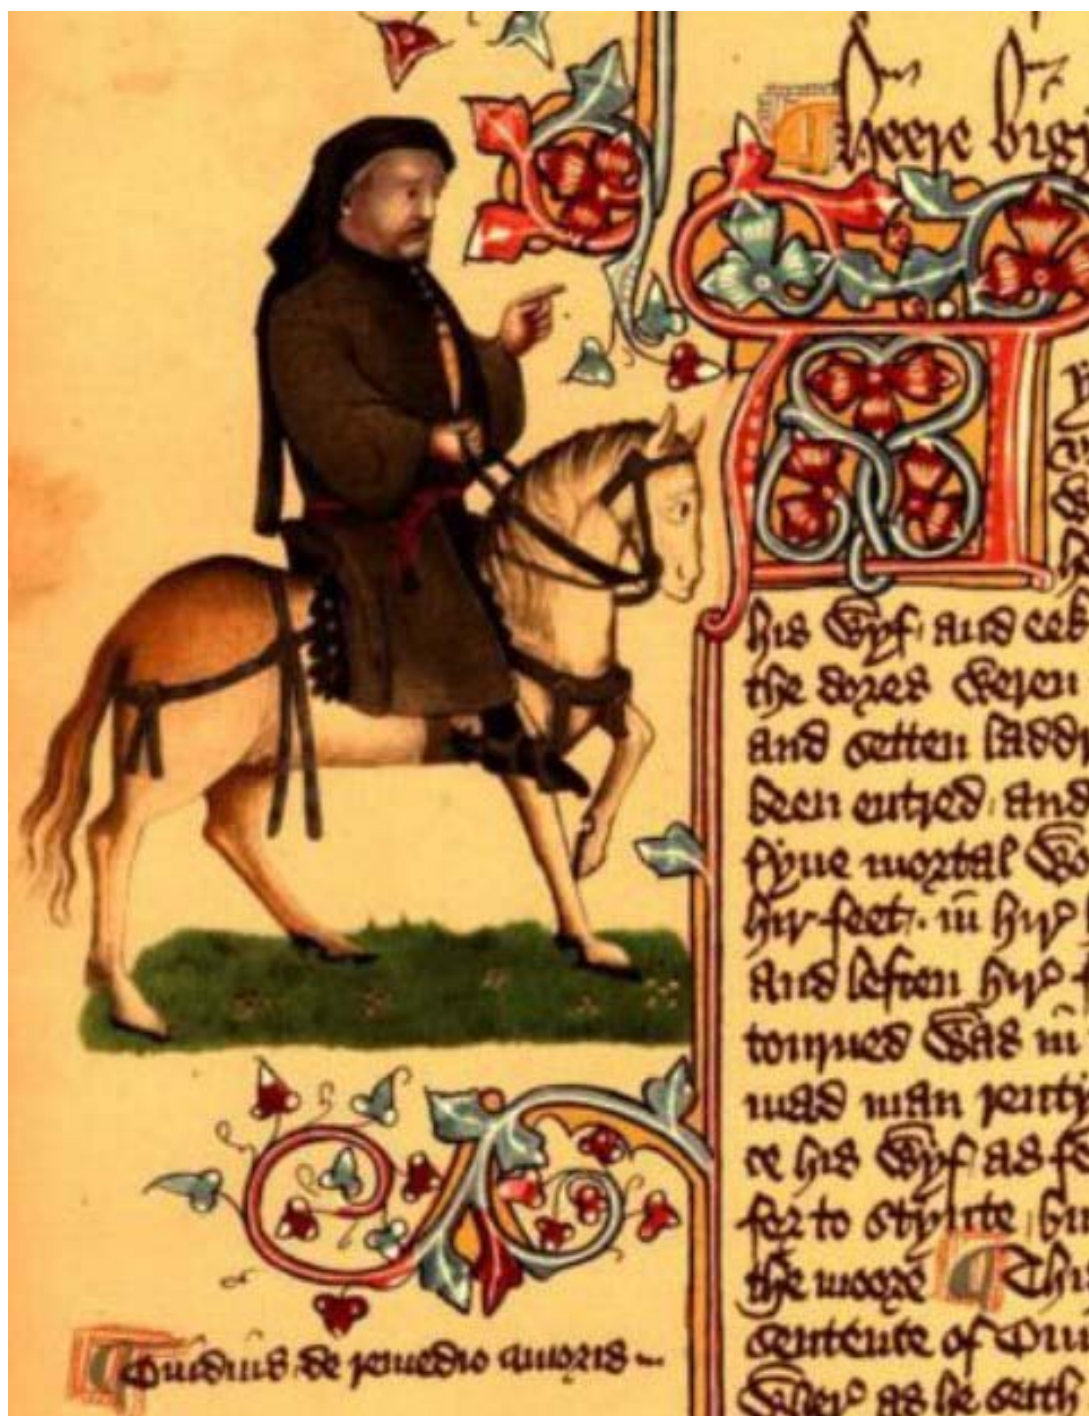 Heere big
his wyf and eek
the dores weren
and setten ladd
been entred and
fyue mortal wo
hir feet in hir
and leften hir
tonrned was in
mad man renty
te his wyf as f
for to stynte
the moore Thi
sentence of Oui
wher as he seith
Ouidius de remedio amoris